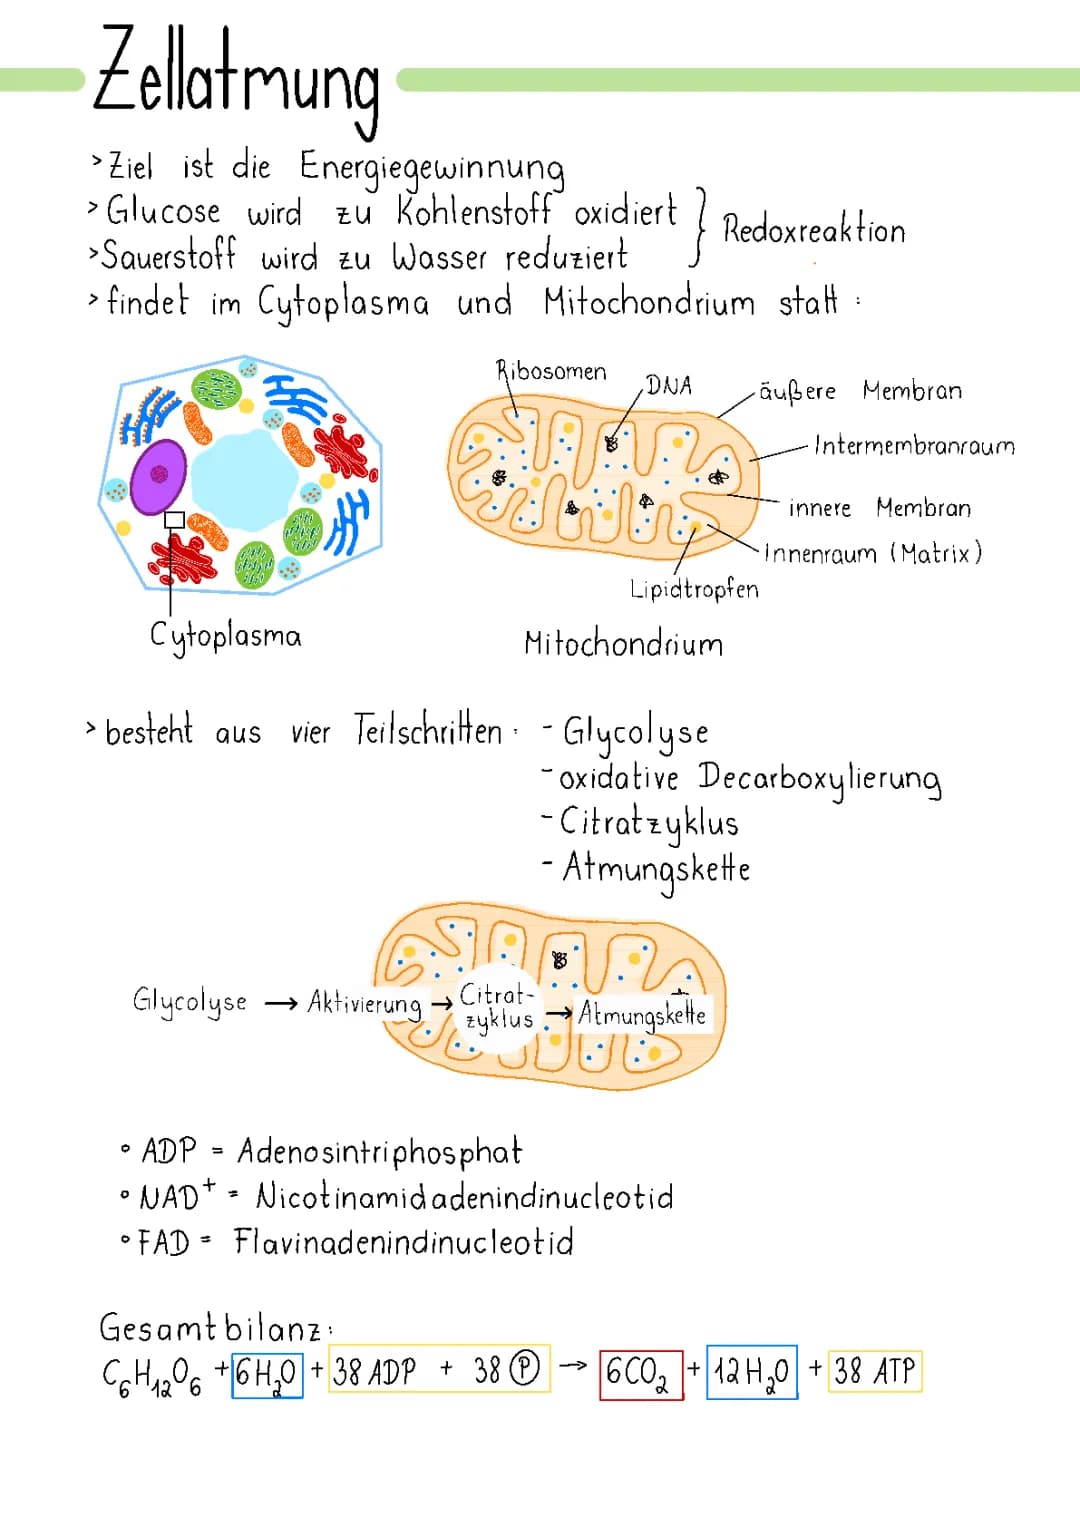 Zellatmung
> Ziel ist die Energiegewinnung
> Glucose wird zu Kohlenstoff oxidiert
> Sauerstoff wird zu Wasser reduziert
} Redoxreaktion
> findet im Cytoplasma und Mitochondrium statt :
Ribosomen
DNA
äußere Membran
Intermembranraum
innere Membran
Innenraum (Matrix)
Lipidtropfen
Cytoplasma
Mitochondrium
> besteht aus vier Teilschritten: - Glycolyse
- oxidative Decarboxylierung
- Citratzyklus
- Atmungskette
Glycolyse → Aktivierung → Citrat-
zyklus → Atmungskette
° ADP = Adenosintriphosphat
° NAD⁺ = Nicotinamidadenindinucleotid
° FAD = Flavinadenindinucleotid
Gesamtbilanz:
C₆H₁₂O₆ + 6H₂O + 38 ADP + 38 Ⓟ → 6CO₂ + 12H₂O + 38 ATP